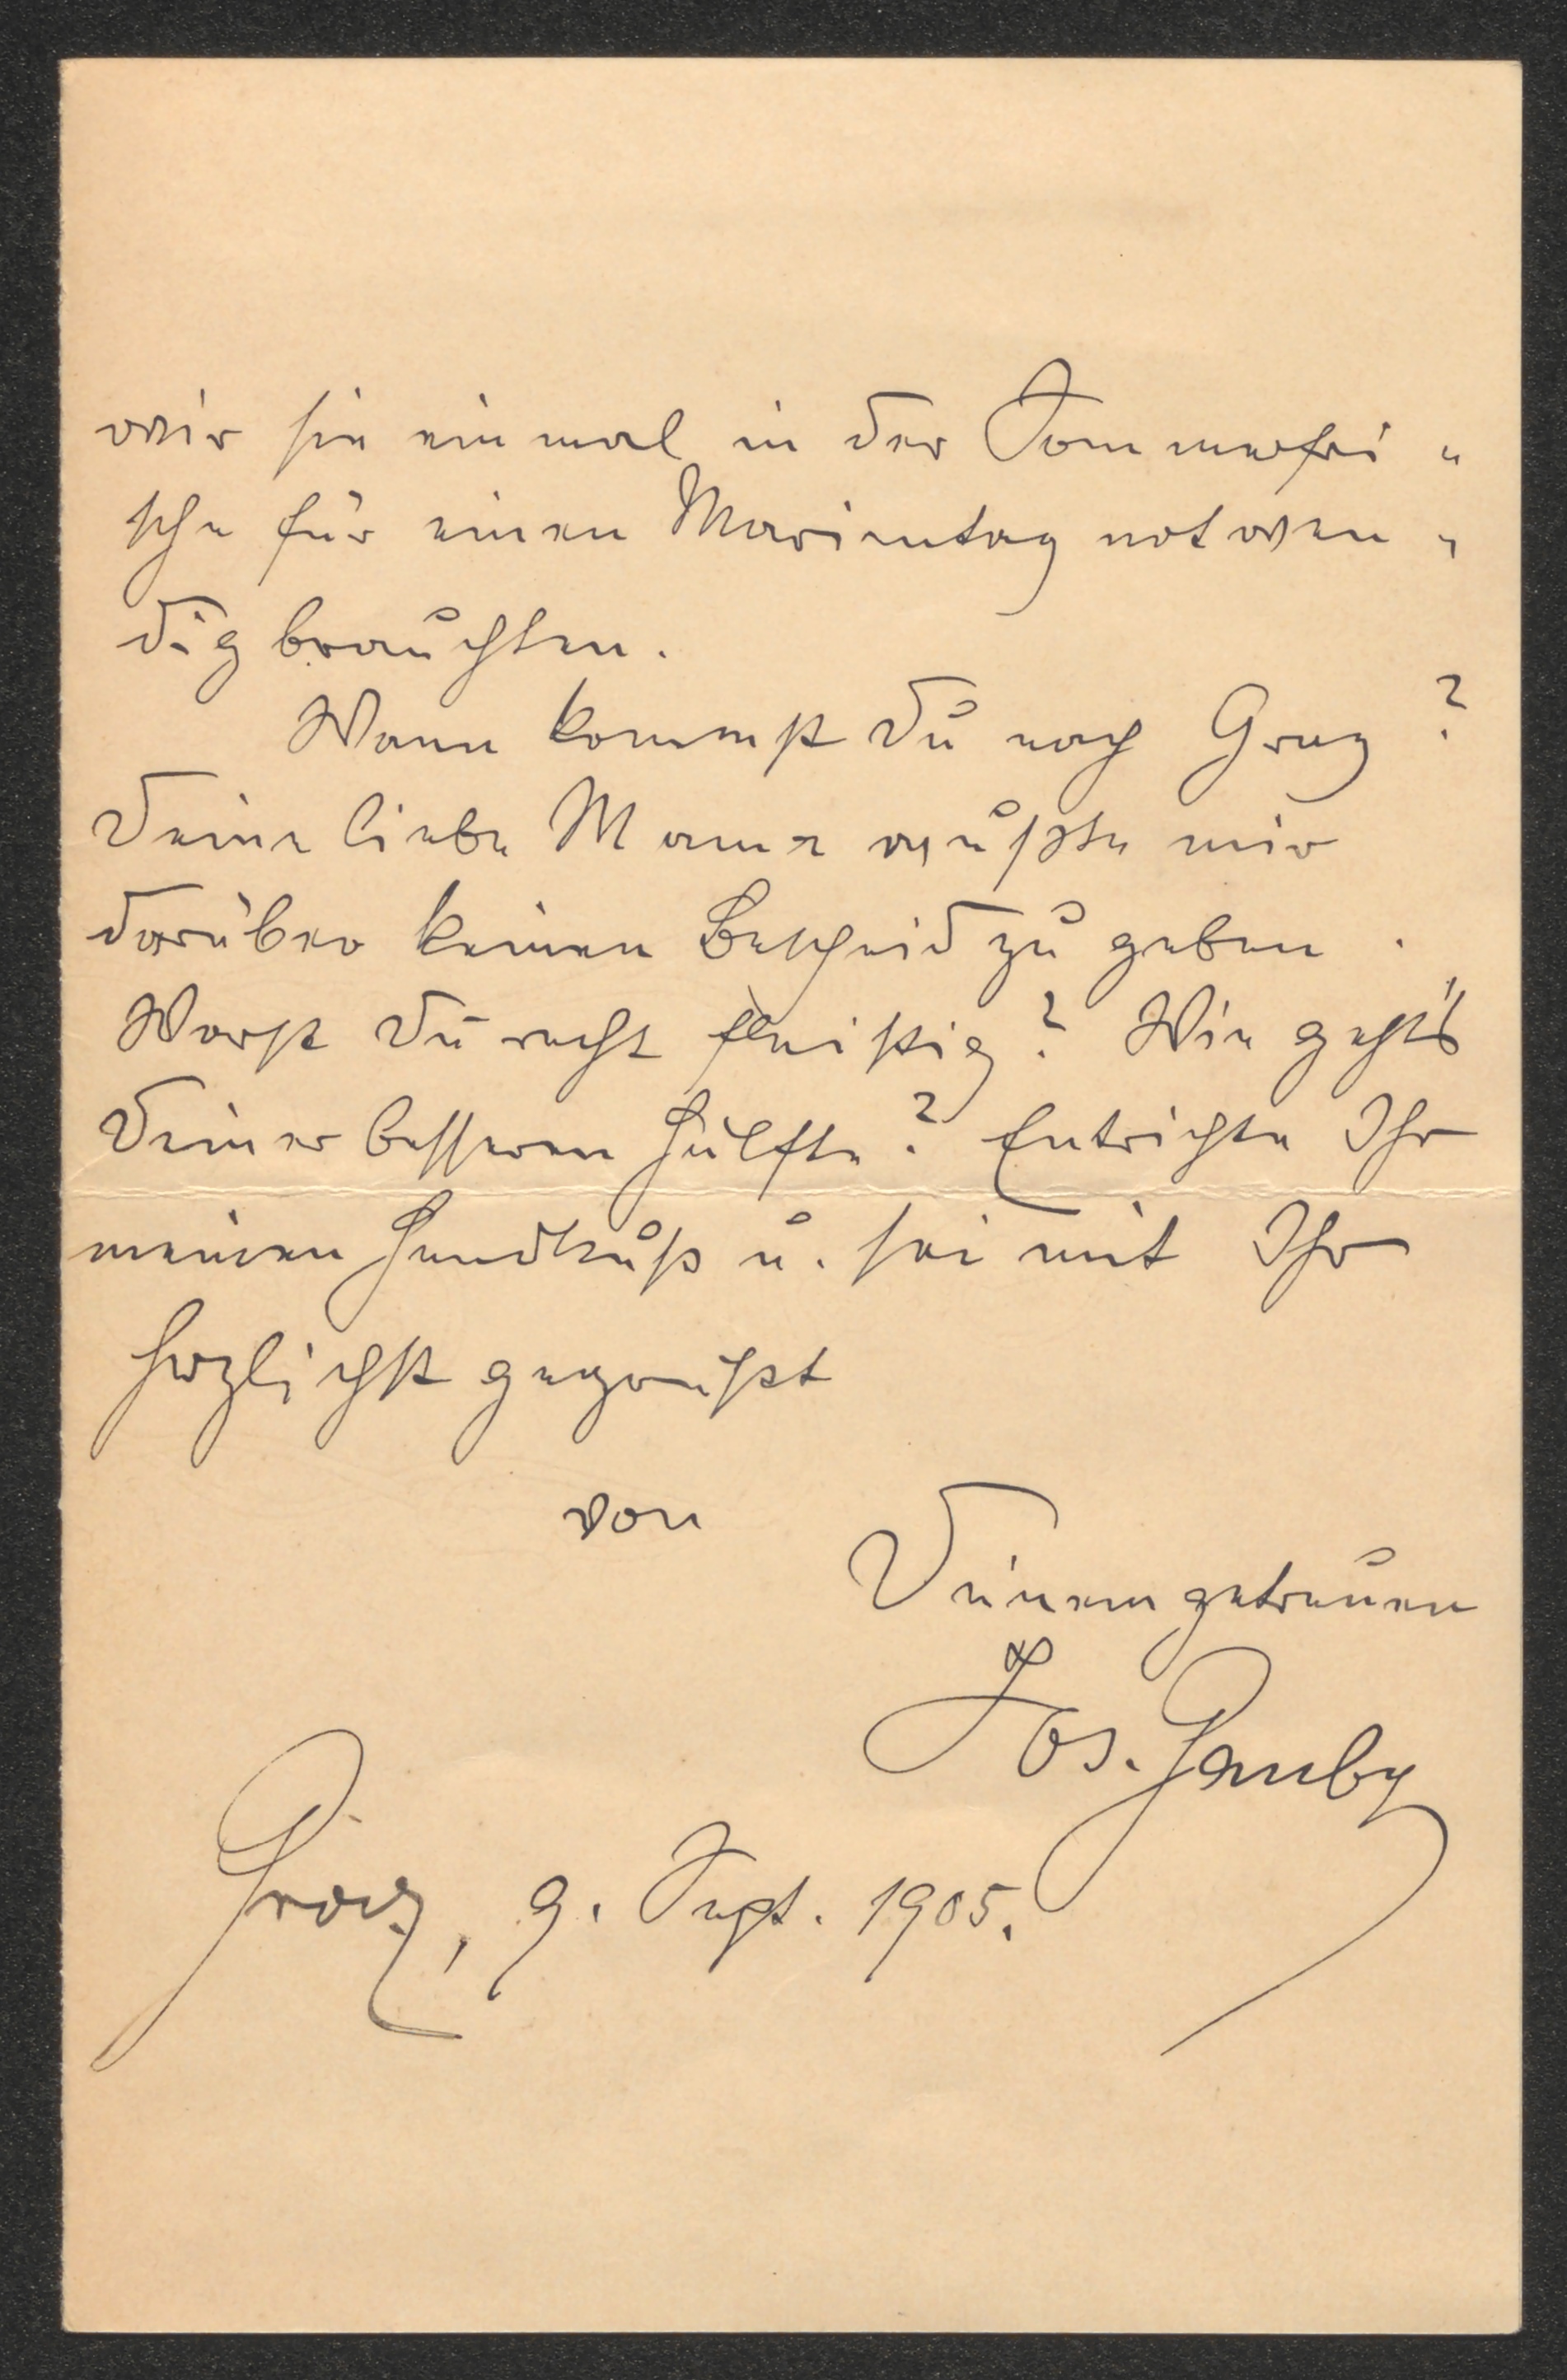 wir sie einmal in der Sommerfri„
sche für einen Marientag notwen„
dig brauchten.
Wann kommst Du nach Graz?
Deine liebe Mama wußte mir
darüber keinen Bescheid zu geben.
Warst Du recht fleißig? Wie geht's
Deiner besseren Hälfte? Entrichte Ihr
meinen Handkuß u. sei mit Ihr
herzlichst gegrüßt
von
Deinem getreuen
Jos. Gauby
Graz, 9. Sept. 1905.